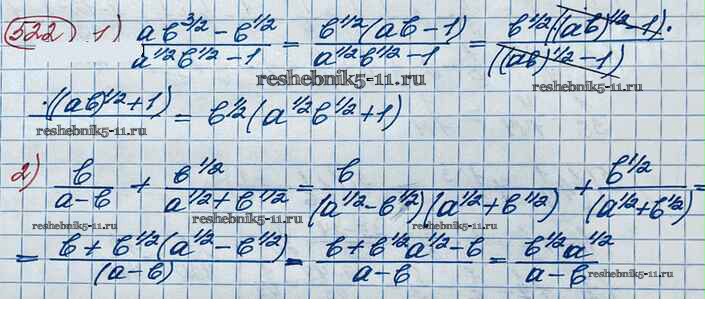 522) 1) (ab^{3/2} - b^{1/2})/(a^{1/2}b^{1/2} - 1) = (b^{1/2}(ab - 1))/(a^{1/2}b^{1/2} - 1) = (b^{1/2}((ab)^{1/2} - 1) ·)/((ab)^{1/2} - 1)
reshebnik5-11.ru
reshebnik5-11.ru
· ((ab)^{1/2} + 1) = b^{1/2}(a^{1/2}b^{1/2} + 1)
reshebnik5-11.ru
2) b/(a - b) + b^{1/2}/(a^{1/2} + b^{1/2}) = b/((a^{1/2} - b^{1/2})(a^{1/2} + b^{1/2})) + b^{1/2}/(a^{1/2} + b^{1/2}) =
reshebnik5-11.ru
reshebnik5-11.ru
reshebnik5-11.ru
= (b + b^{1/2}(a^{1/2} - b^{1/2}))/(a - b) = (b + b^{1/2}a^{1/2} - b)/(a - b) = (b^{1/2}a^{1/2})/(a - b)
reshebnik5-11.ru